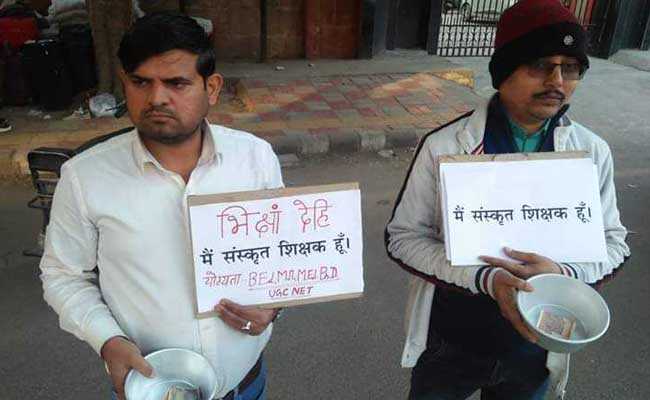 भिक्षां देहि
मैं संस्कृत शिक्षक हूँ।
योग्यता B.Ed, M.A, M.Ed, Ph.D
UGC NET
मैं संस्कृत शिक्षक हूँ।